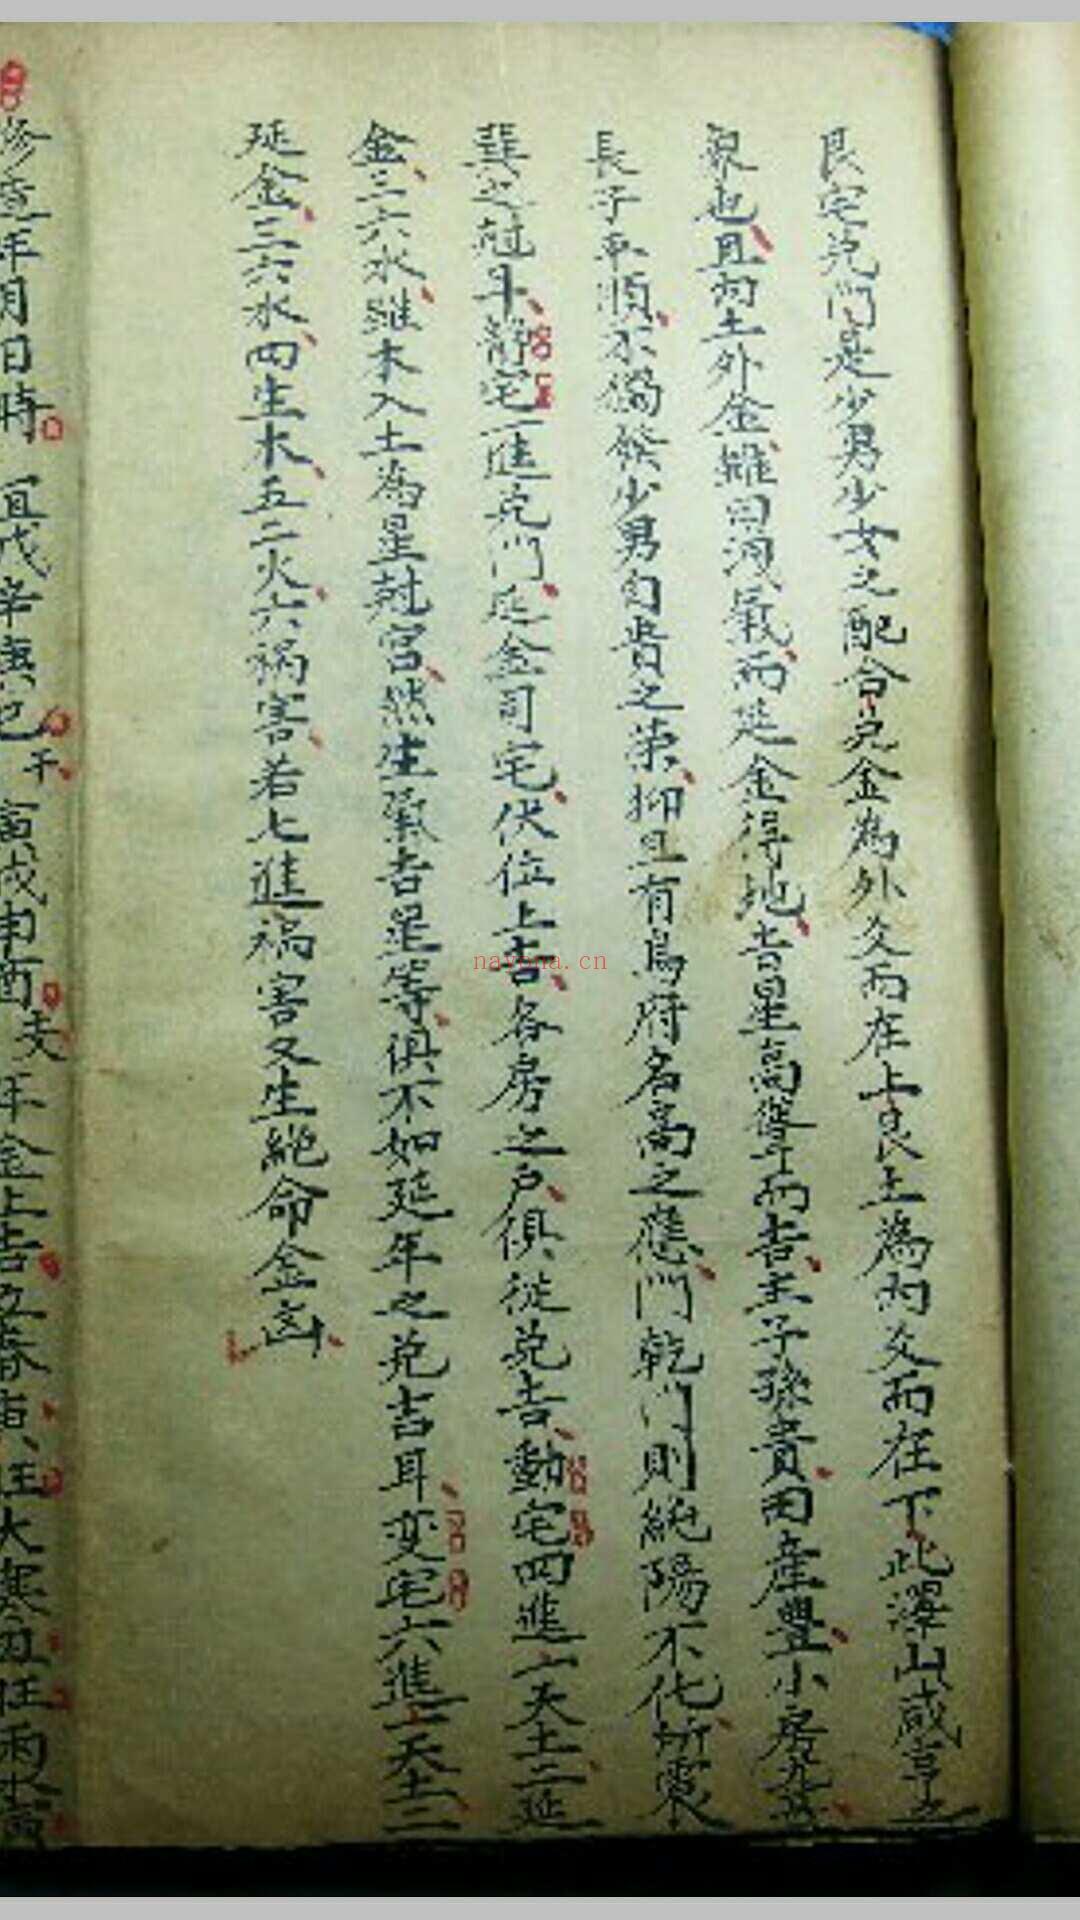 艮宅兑門是少男少女之配合兑金為外爻而在上艮土為內爻而在下此澤山咸亨之
象也且內土外金雖曰洩氣而延金得地吉星高聳而吉主子孫貴田產豐小房尤益
長子平順不獨發少男自貴之榮抑且有烏府名高之應門乾門則純陽不化所衰
之尅耳靜宅一進兑門延金司宅伏位上吉各房之戶俱從兑吉動宅四進一天土二延
金三六水雖木入土為星尅宮然生氣吉星等俱不如延年之兑吉耳变宅六進一天土二
延金三六水四生木五二火六禍害若七進禍害又生絕命金凶
修造年月日時宜戊辛庚己干寅戌申酉支年金上吉立春寅旺大寒丑旺雨水寅
nayona.cn